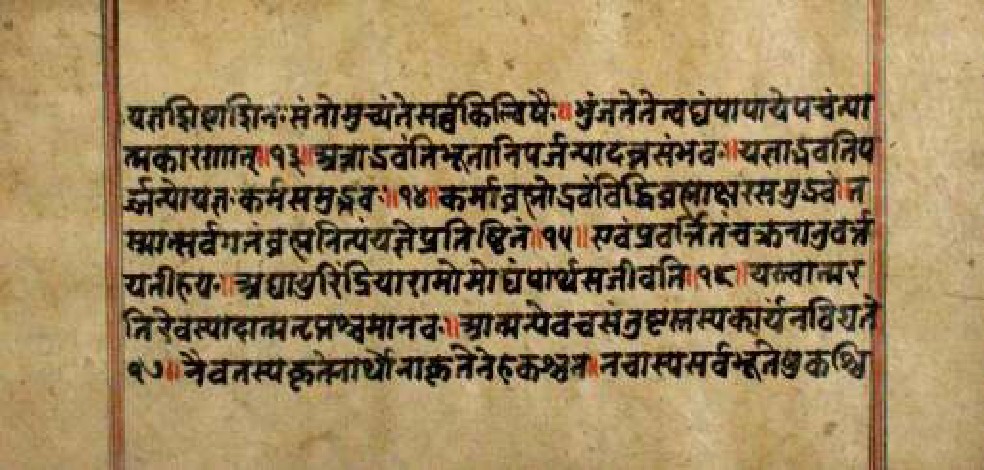 यज्ञशिष्टाशिनः संतो मुच्यंते सर्वकिल्विषैः ॥ भुंजते ते त्वघं पापा ये पचंत्या
त्मकारणात् ॥१३॥ अन्नाद्भवंति भूतानि पर्जन्यादन्नसंभवः ॥ यज्ञाद्भवति प
र्जन्यो यज्ञः कर्मसमुद्भवः ॥१४॥ कर्म ब्रह्मोद्भवं विद्धि ब्रह्माक्षरसमुद्भवं ॥ त
स्मात्सर्वगतं ब्रह्म नित्यं यज्ञे प्रतिष्ठितं ॥१५॥ एवं प्रवर्त्तितं चक्रं नानुवर्त्त
यतीह यः ॥ अघायुरिंद्रियारामो मोघं पार्थ स जीवति ॥१६॥ यस्त्वात्मर
तिरेव स्यादात्मतृप्तश्च मानवः ॥ आत्मन्येव च संतुष्टस्तस्य कार्यं न विद्यते
१७॥ नैव तस्य कृतेनार्थो नाकृतेनेह कश्चन ॥ न चास्य सर्वभूतेषु कश्चि